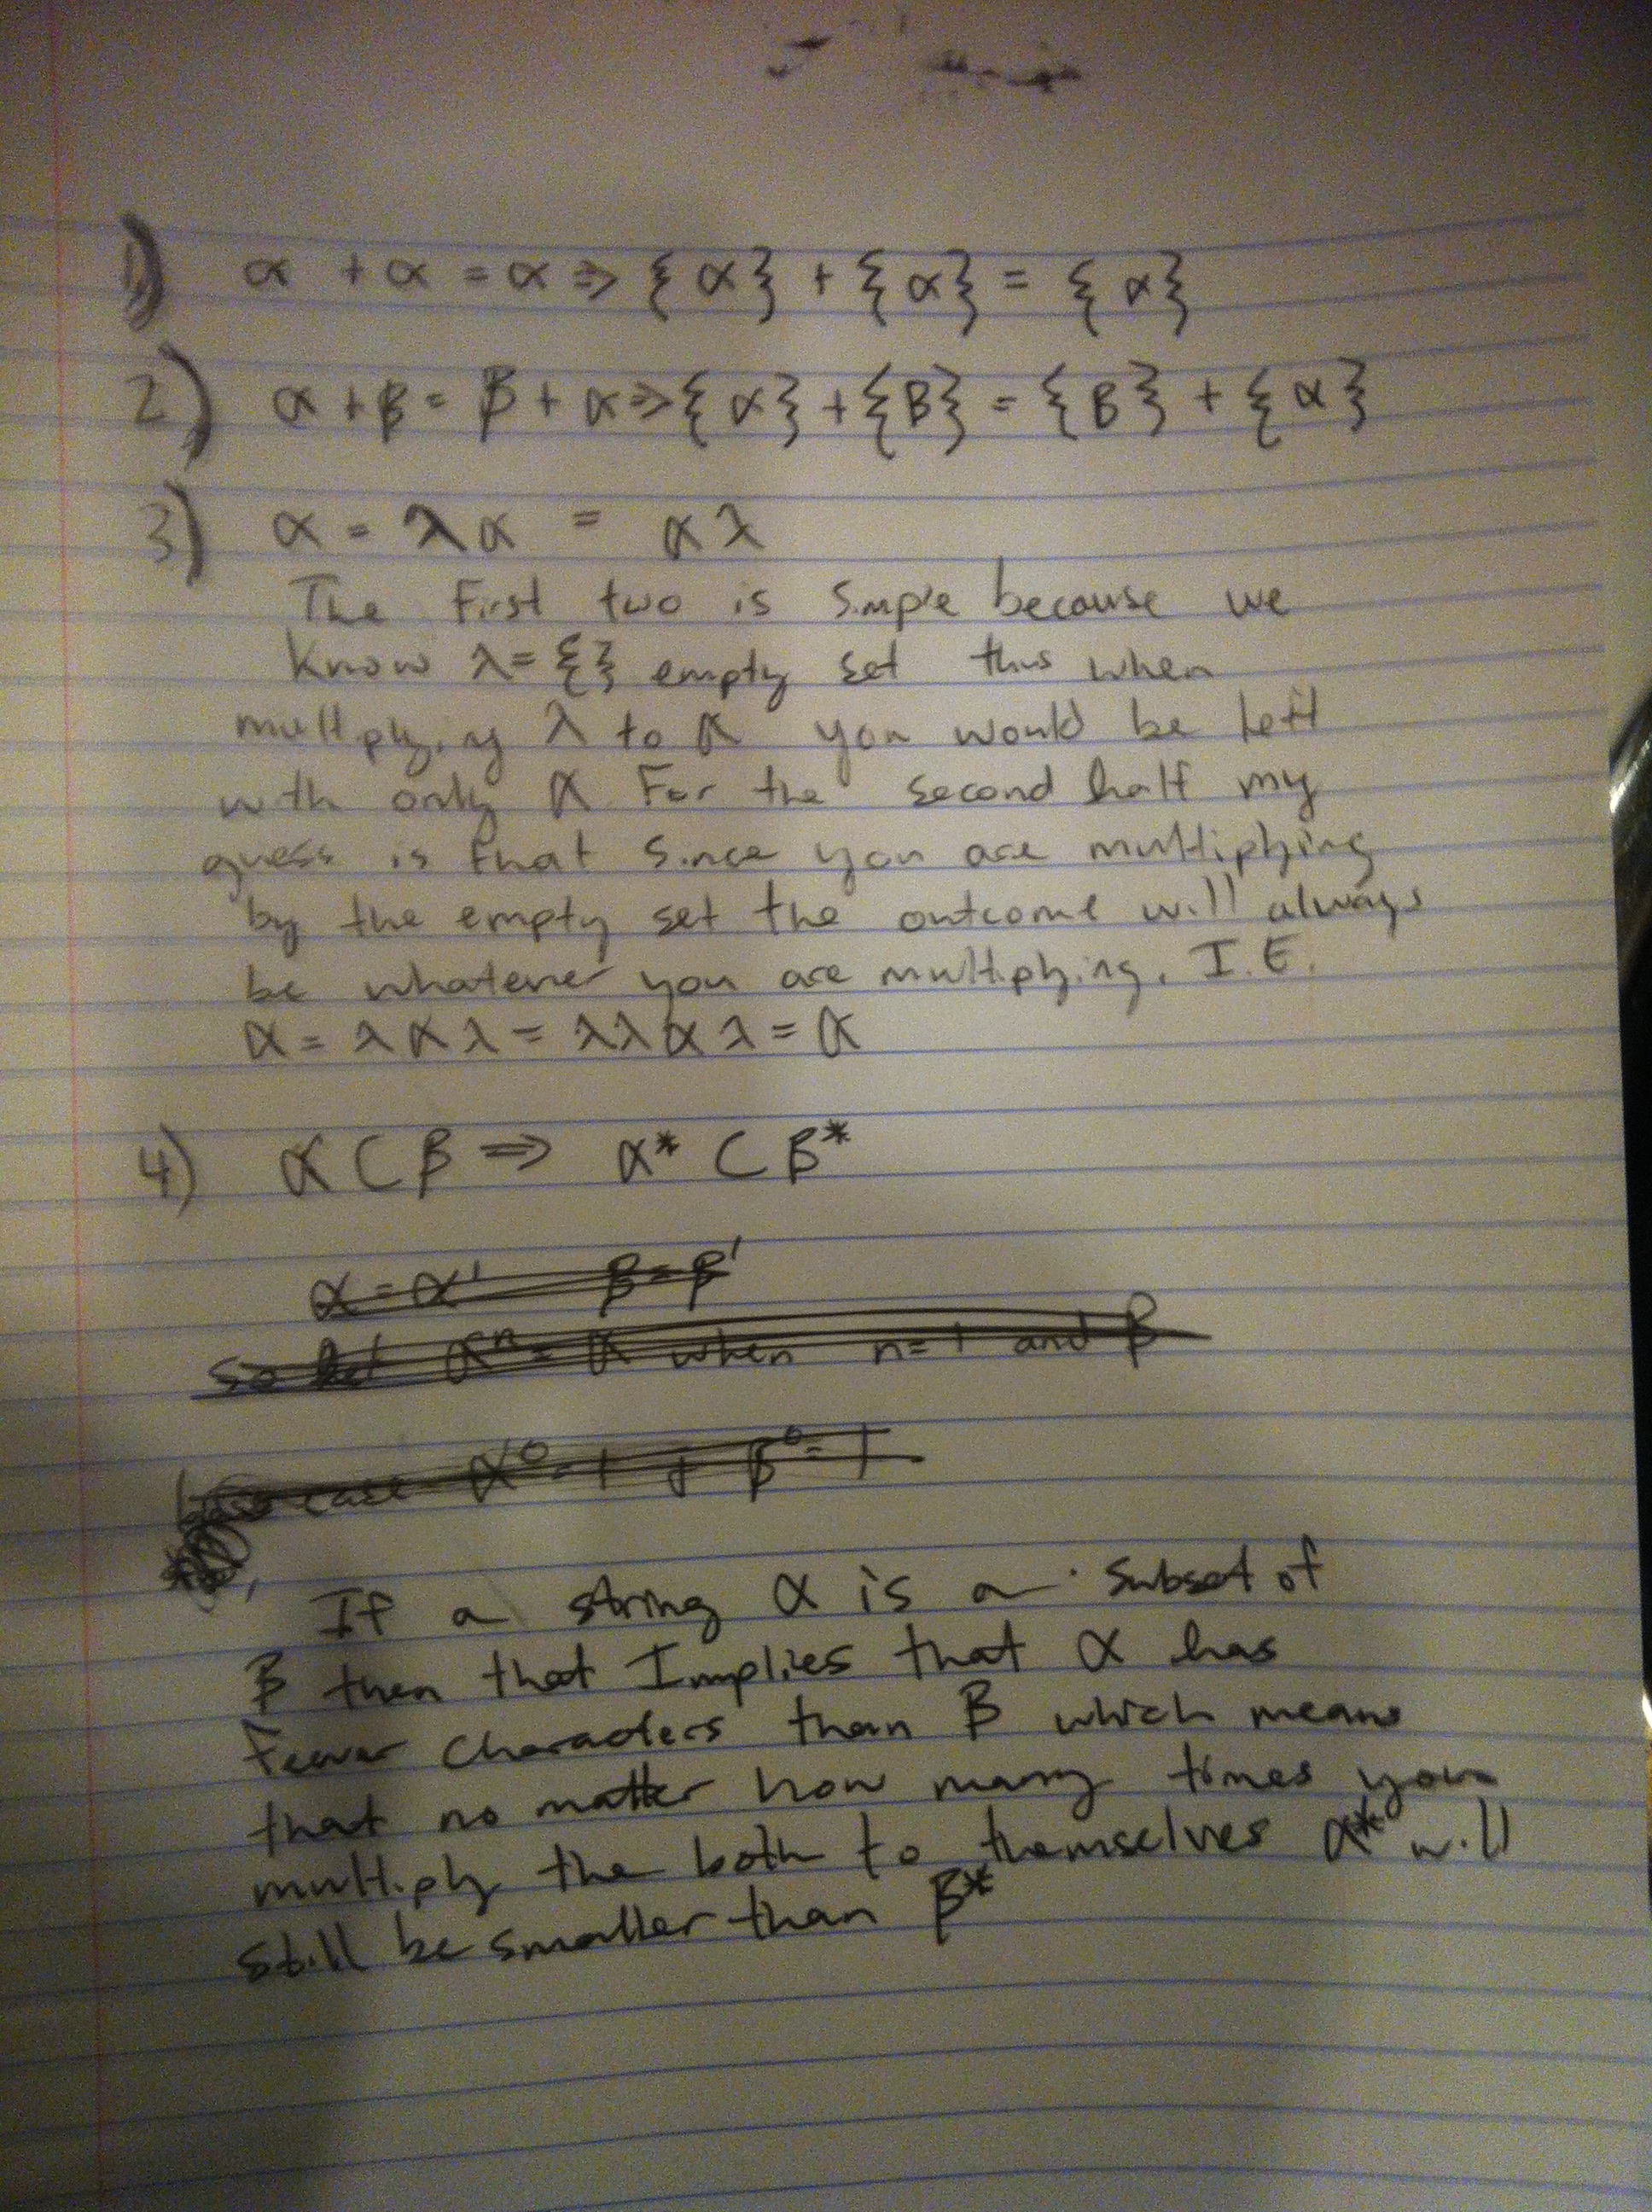 1) α + α = α => {α} + {α} = {α}
2) α + β = β + α => {α} + {B} = {B} + {α}
3) α = λα = αλ
The First two is simple because we
know λ={} empty set thus when
multiplying λ to α you would be left
with only α. For the second half my
guess is that since you are multiplying
by the empty set the outcome will always
be whatever you are multiplying. I.E.
α = λαλ = λλαλ = α
4) α ⊂ β => α* ⊂ β*
α = α' β = β'
So let αⁿ = α when n=1 and β
base case α⁰ = 1 β⁰ = 1
If a string α is a subset of
β then that Implies that α has
Fewer characters than β which means
that no matter how many times you
multiply the both to themselves α* will
still be smaller than β*